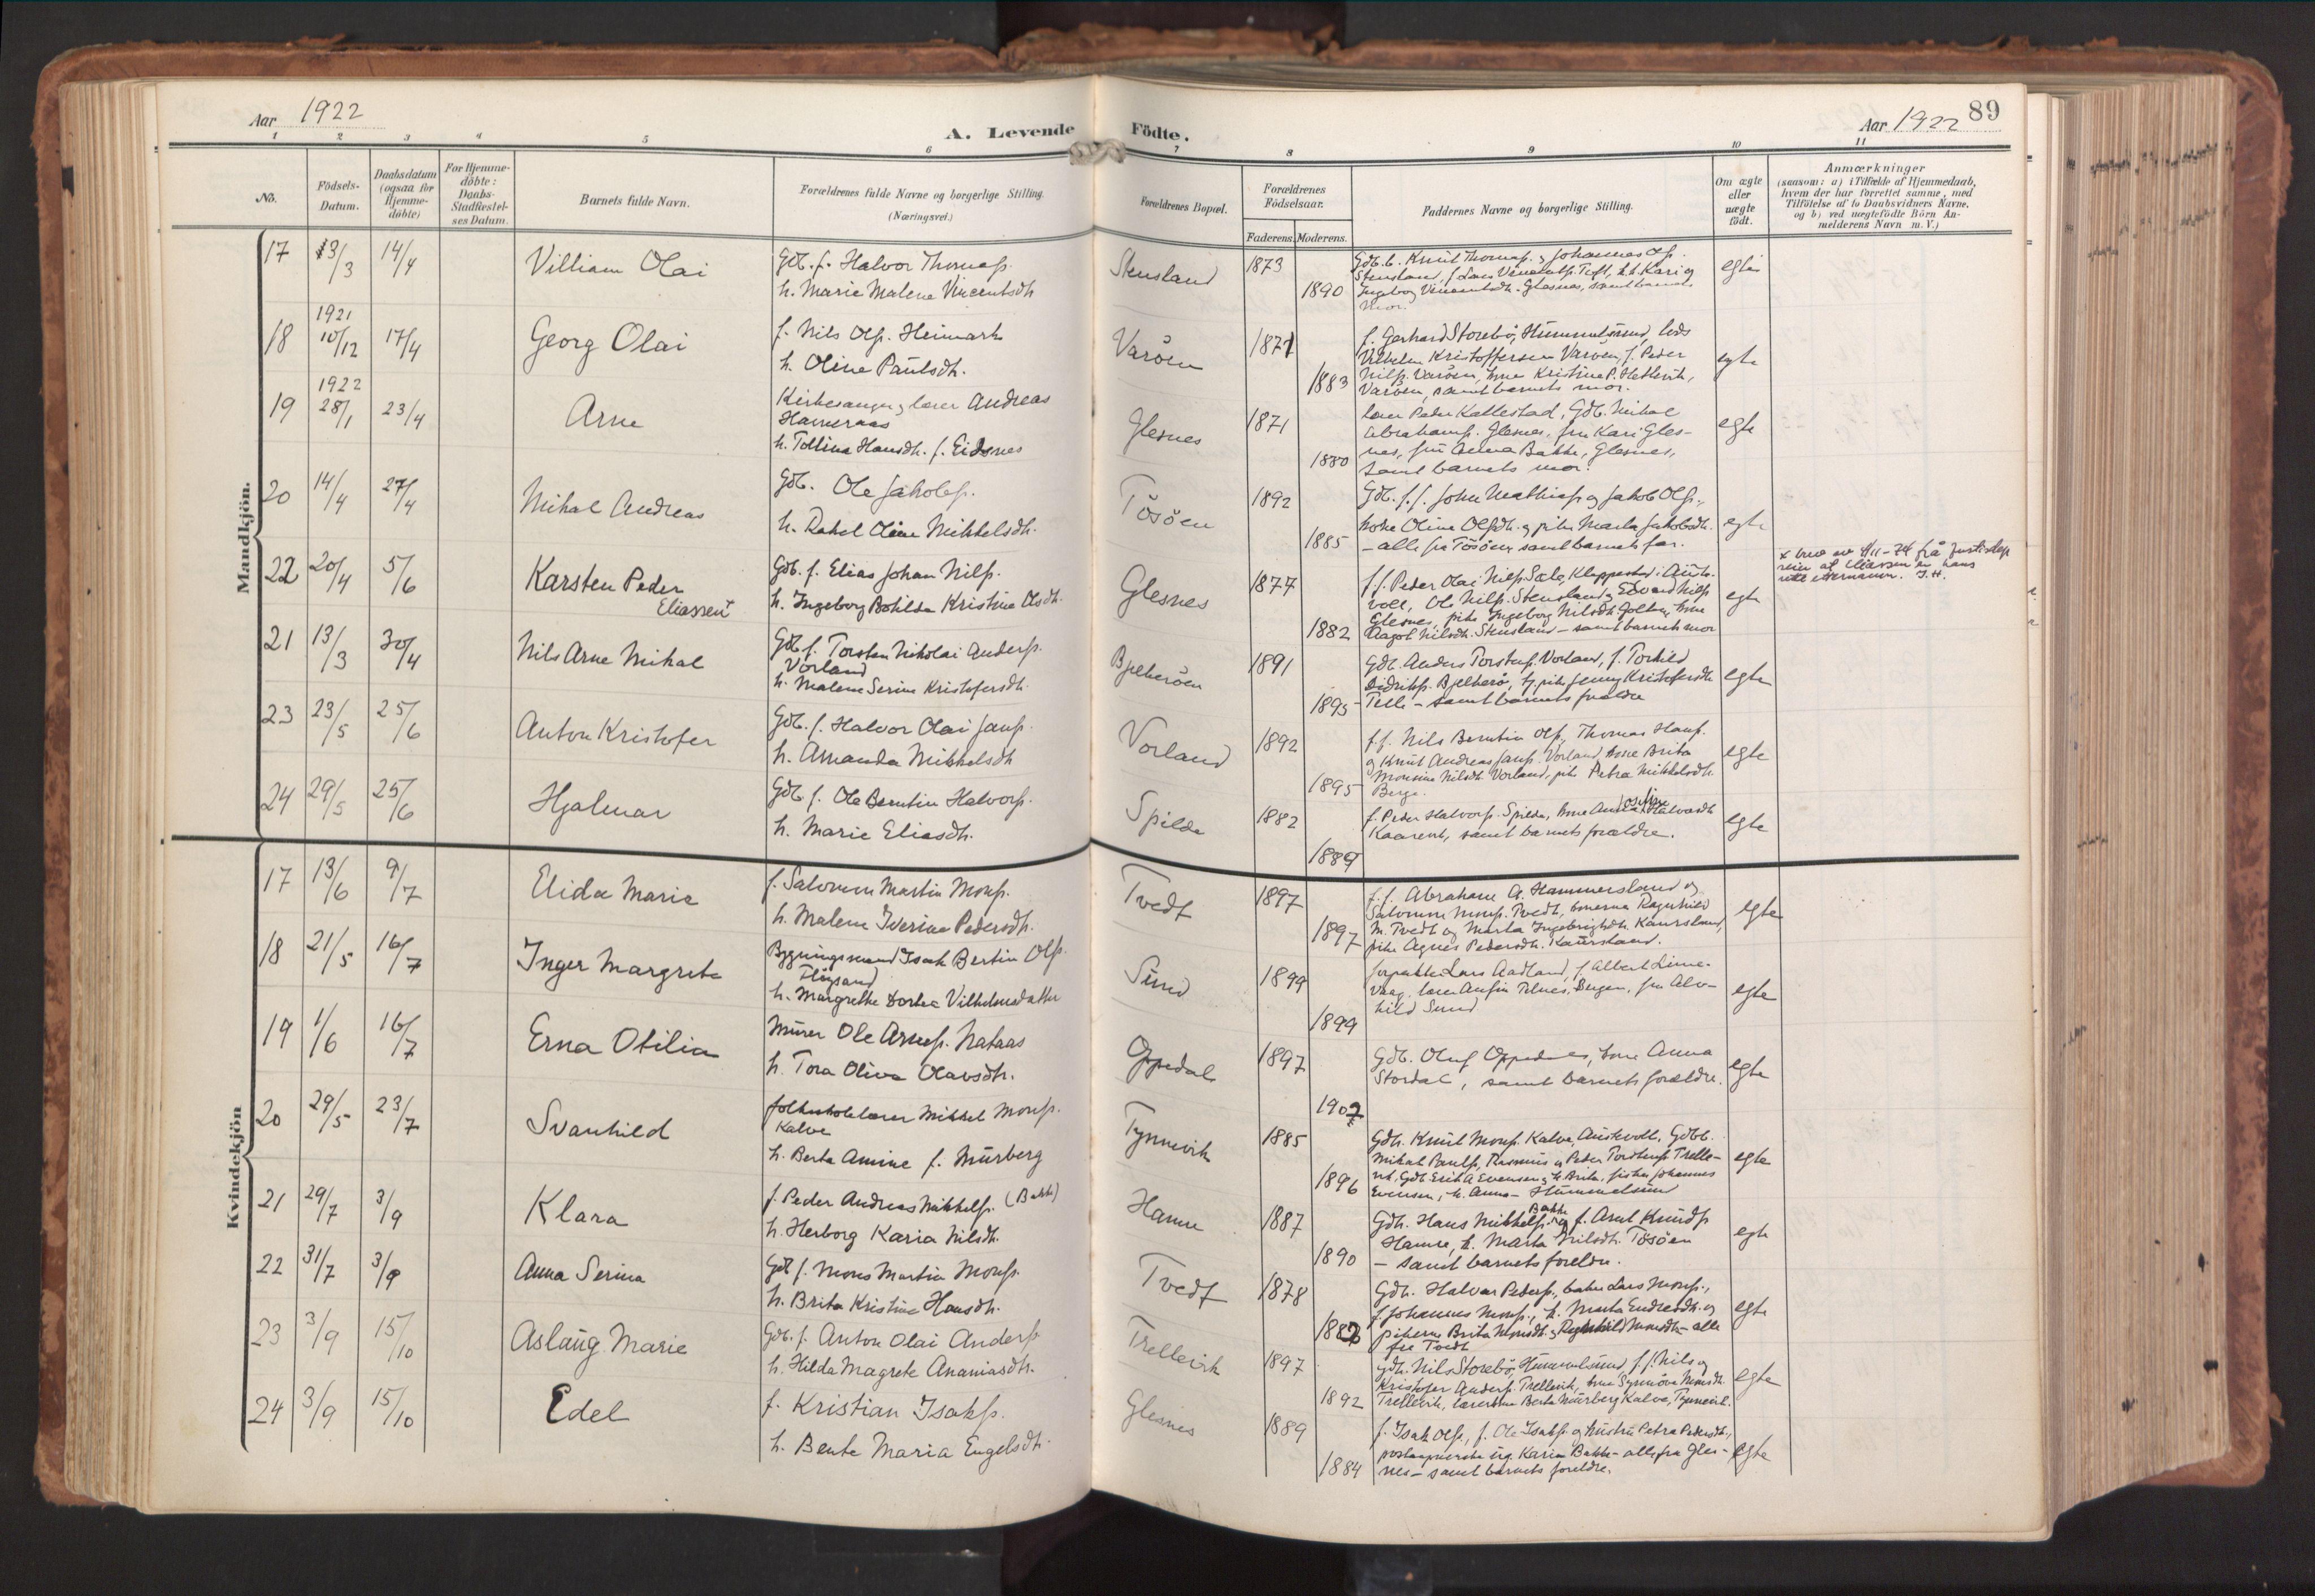 Aar 1922
A. Levende Födte.
Aar 1922
89
1 2 3 4 5 6 7 8 9 10 11
No.
Födsels-Datum.
Daabsdatum (ogsaa for Hjemme-döbte)
For Hjemme-döbte: Daabs-Stadfæstel-ses Datum.
Barnets fulde Navn.
Forældrenes fulde Navne og borgerlige Stilling. (Næringsvei.)
Forældrenes Bopæl.
Forældrenes Födselsaar.
Faderens. Moderens.
Faddernes Navne og borgerlige Stilling.
Om ægte eller uægte födt.
Anmærkninger
(saasom: a) i Tilfælde af Hjemmedaab,
hvem der har forrettet samme, med
Tilföielse af to Daabsvidners Navne,
og b) ved uægtefödte Börn An-
melderens Navn m. V.)
Mandkjön.
17 13/3 14/4 Villiam Olai
Gdb. f. Halvor Thomass.
h. Marie Malene Vincentsdh
Stensland 1873 1890
Gdb. b. Knut Thomass. og Johannes Ols.
Stensland, f. Lars
mor.
egte
18 1921 10/12 17/4 Georg Olai
f. Nils Ols. Heimark
h. Oline Paulsdh.
Varöen 1871 1883
f. Gerhard Storebö, Hummelsund, lods
Vilhelm Kristoffersen Varöen, f. Peder
Nilss. Varöen, kone Kristine P. Hetlevik,
Varöen, samt barnets mor.
egte
19 1922 28/1 23/4 Arne
Kirkesanger og lærer Andreas
Hameraas
h. Tolline Hansdh. f. Eidsnes
Glesnes 1871 1880
lærer Peder Kallestad, Gdb. Mikal
Abrahams. Glesnes, fru Kari Gles-
nes, fru Anna Bakke, Glesnes,
samt barnets mor.
egte
20 14/4 27/4 Mikal Andreas
Gdb. Ole Jakobs.
h. Rakel Oline Mikkelsdh.
Tösöen 1892 1885
Gdb. f.f. John Mathias. og Jakob Ols.,
kone Oline Olsdh. og pike Marta Jakobsdh.
- alle fra Tösöen samt barnets far.
egte
22 20/4 5/6 Karsten Peder
Eliassen
Gdb. f. Elias Johan Nilss.
h. Ingeborg Botilda Kristine Olsdh.
Glesnes 1877 1882
f.f. Peder Olai Nilss. Sole, Kleppestad i Aust-
voll, Ole Nilss. Stensland og Edvard Nilss
Glesnes, pike Ingeborg Nilsdh. Golten, kone
Aagot Nilsdh. Stensland - samt barnets mor
egte
21 13/3 30/4 Nils Arne Mikal
Gdb. f. Torsten Nikolai Anderss.
Vorland
h. Malene Serine Kristofersdh.
Bjelkeröen 1891 1895
Gdb. Anders Torstens. Vorland, f. Torkild
Didrikss. Bjelkerö, tj. pike Jenny Kristofersdh
Telle - samt barnets forældre
egte
23 23/5 25/6 Anton Kristofer
Gdb. f. Halvor Olai Jans.
h. Amanda Mikkelsdh
Vorland 1892 1895
f.f. Nils Berntin Ols., Thomas Hans.
og Knut Andreas Jans. Vorland, kone Brita
Monsine Nilsdh. Vorland, pike Petra Mikkelsdh.
Berge.
egte
24 29/5 25/6 Hjalmar
Gdb. f. Ole Berntin Halvors.
h. Marie Eliasdh.
Spilde 1882 1889
f. Peder Halvors. Spilde, kone Anna Josefine Halvorsdh
Kaarevik, samt barnets forældre.
egte
Kvindekjön
17 13/6 9/7 Elida Marie
f. Salomon Martin Monss.
h. Malene Iverine Pedersdh.
Tvedt 1897 1897
f.f. Abraham A. Hammersland og
Salomon Monss. Tvedt, konerne Ragnhild
M. Tvedt og Marta Ingebrigtsdh. Kausland,
pike Agnes Pedersdh. Kausland.
egte
18 21/5 16/7 Inger Margrete
Bygningsmand Isak Bertin Ols.
Flögsand
h. Margrethe Dorthea Vilhelmsdatter
Sund 1899 1899
forpakter Lars Aadland, f. Albert Lime-
vaag, lærer Anfin Telnes, Bergen, fru Alv-
hild Sund
egte
19 1/6 16/7 Erna Otilia
Murer Ole Arness. Nataas
h. Tora Oliva Olavsdh.
Oppedal 1897 1902
Gdb. Oluf Oppedal, kone Anna
Stordal, samt barnets forældre.
egte
20 29/5 23/7 Svanhild
folkeskolelærer Mikkel Monss.
Kalve
h. Berta Amine f. Murberg
Tynnevik 1885 1896
Gdb. Knut Monss. Kalve, Austevoll, Gdbb.
Mikal Pauls., Rasmus og Peder Torstens. Trelle-
vik, Gdb. Erik A. Evensen og h. Brita, fisker Johannes
Evensen, h. Anna - Hummelsund
egte
21 29/7 3/9 Klara
f. Peder Andreas Mikkels. (Bakk)
h. Herborg Karia Nilsdh.
Hamre 1887 1890
Gdb. Hans Mikkels. Bakke og f. Axel Knuds
Hamre, h. Marta Nilsdh. Tösöen
- samt barnets foreldre.
egte
22 31/7 3/9 Anna Serina
Gdb f. Mons Martin Monss.
h. Brita Kristine Hansdh.
Tvedt 1878 1882
Gdb. Halvor Peders., baker Lars Monss.,
f. Johannes Monss., h. Marta Endresdh. og
pikerne Brita Monsdh. og Ragnhild Monsdh - alle
fra Tvedt
egte
23 3/9 15/10 Aslaug Marie
Gdb. f. Anton Olai Anders
h. Hilda Magrete Ananiasdh.
Trellevik 1897 1892
Gdb. Nils Storebö, Hummelsund, f.f. Nils og
Kristofer Anders. Trellevik, kone Synnöve Monsdh.
Trellevik, lærerkone Berta Murberg Kalve, Tynnevik.
egte
24 3/9 15/10 Edel
f. Kristian Isaks.
h. Bente Maria Engelsdh.
Glesnes 1889 1884
f. Isak Ols., f. Ole Isaks. og hustru Petra Pedersdh.,
Karin Bakke - alle fra Gles-
nes - samt barnets foreldre.
egte